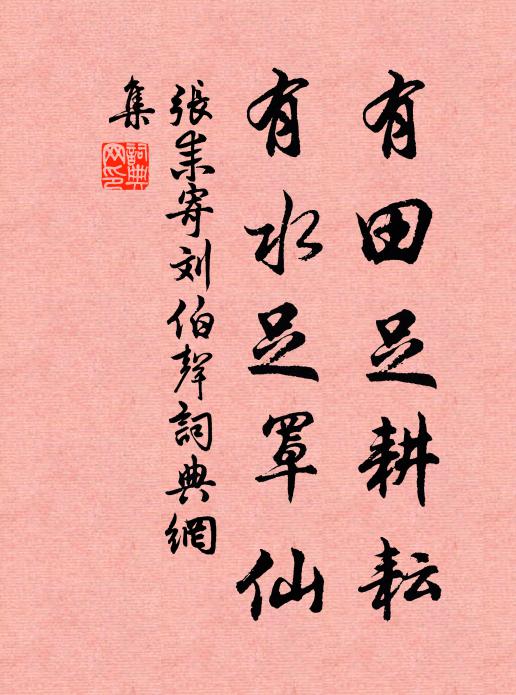 有田足耕耘
有水足罩仙
張耒寄刘伯聲詞典網
集
詞典网印